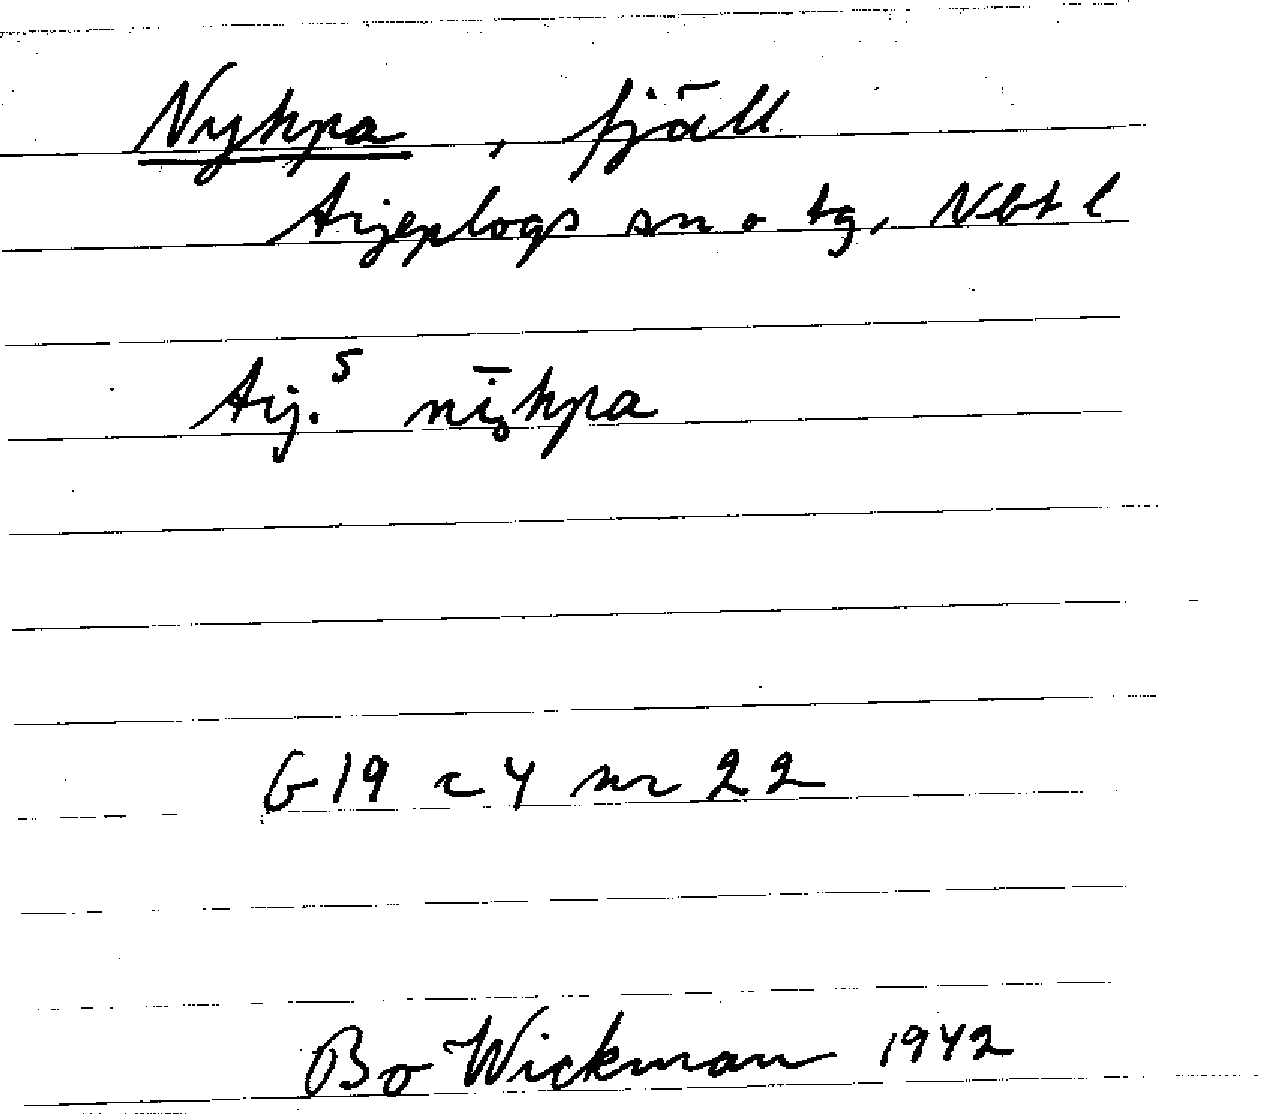 Nyhpa, fjäll
Arjeplogs sn o tg, Nbt l
Arj.⁵ nı̨̄hpa
G 19 c 4 nr 22
Bo Wickman 1942